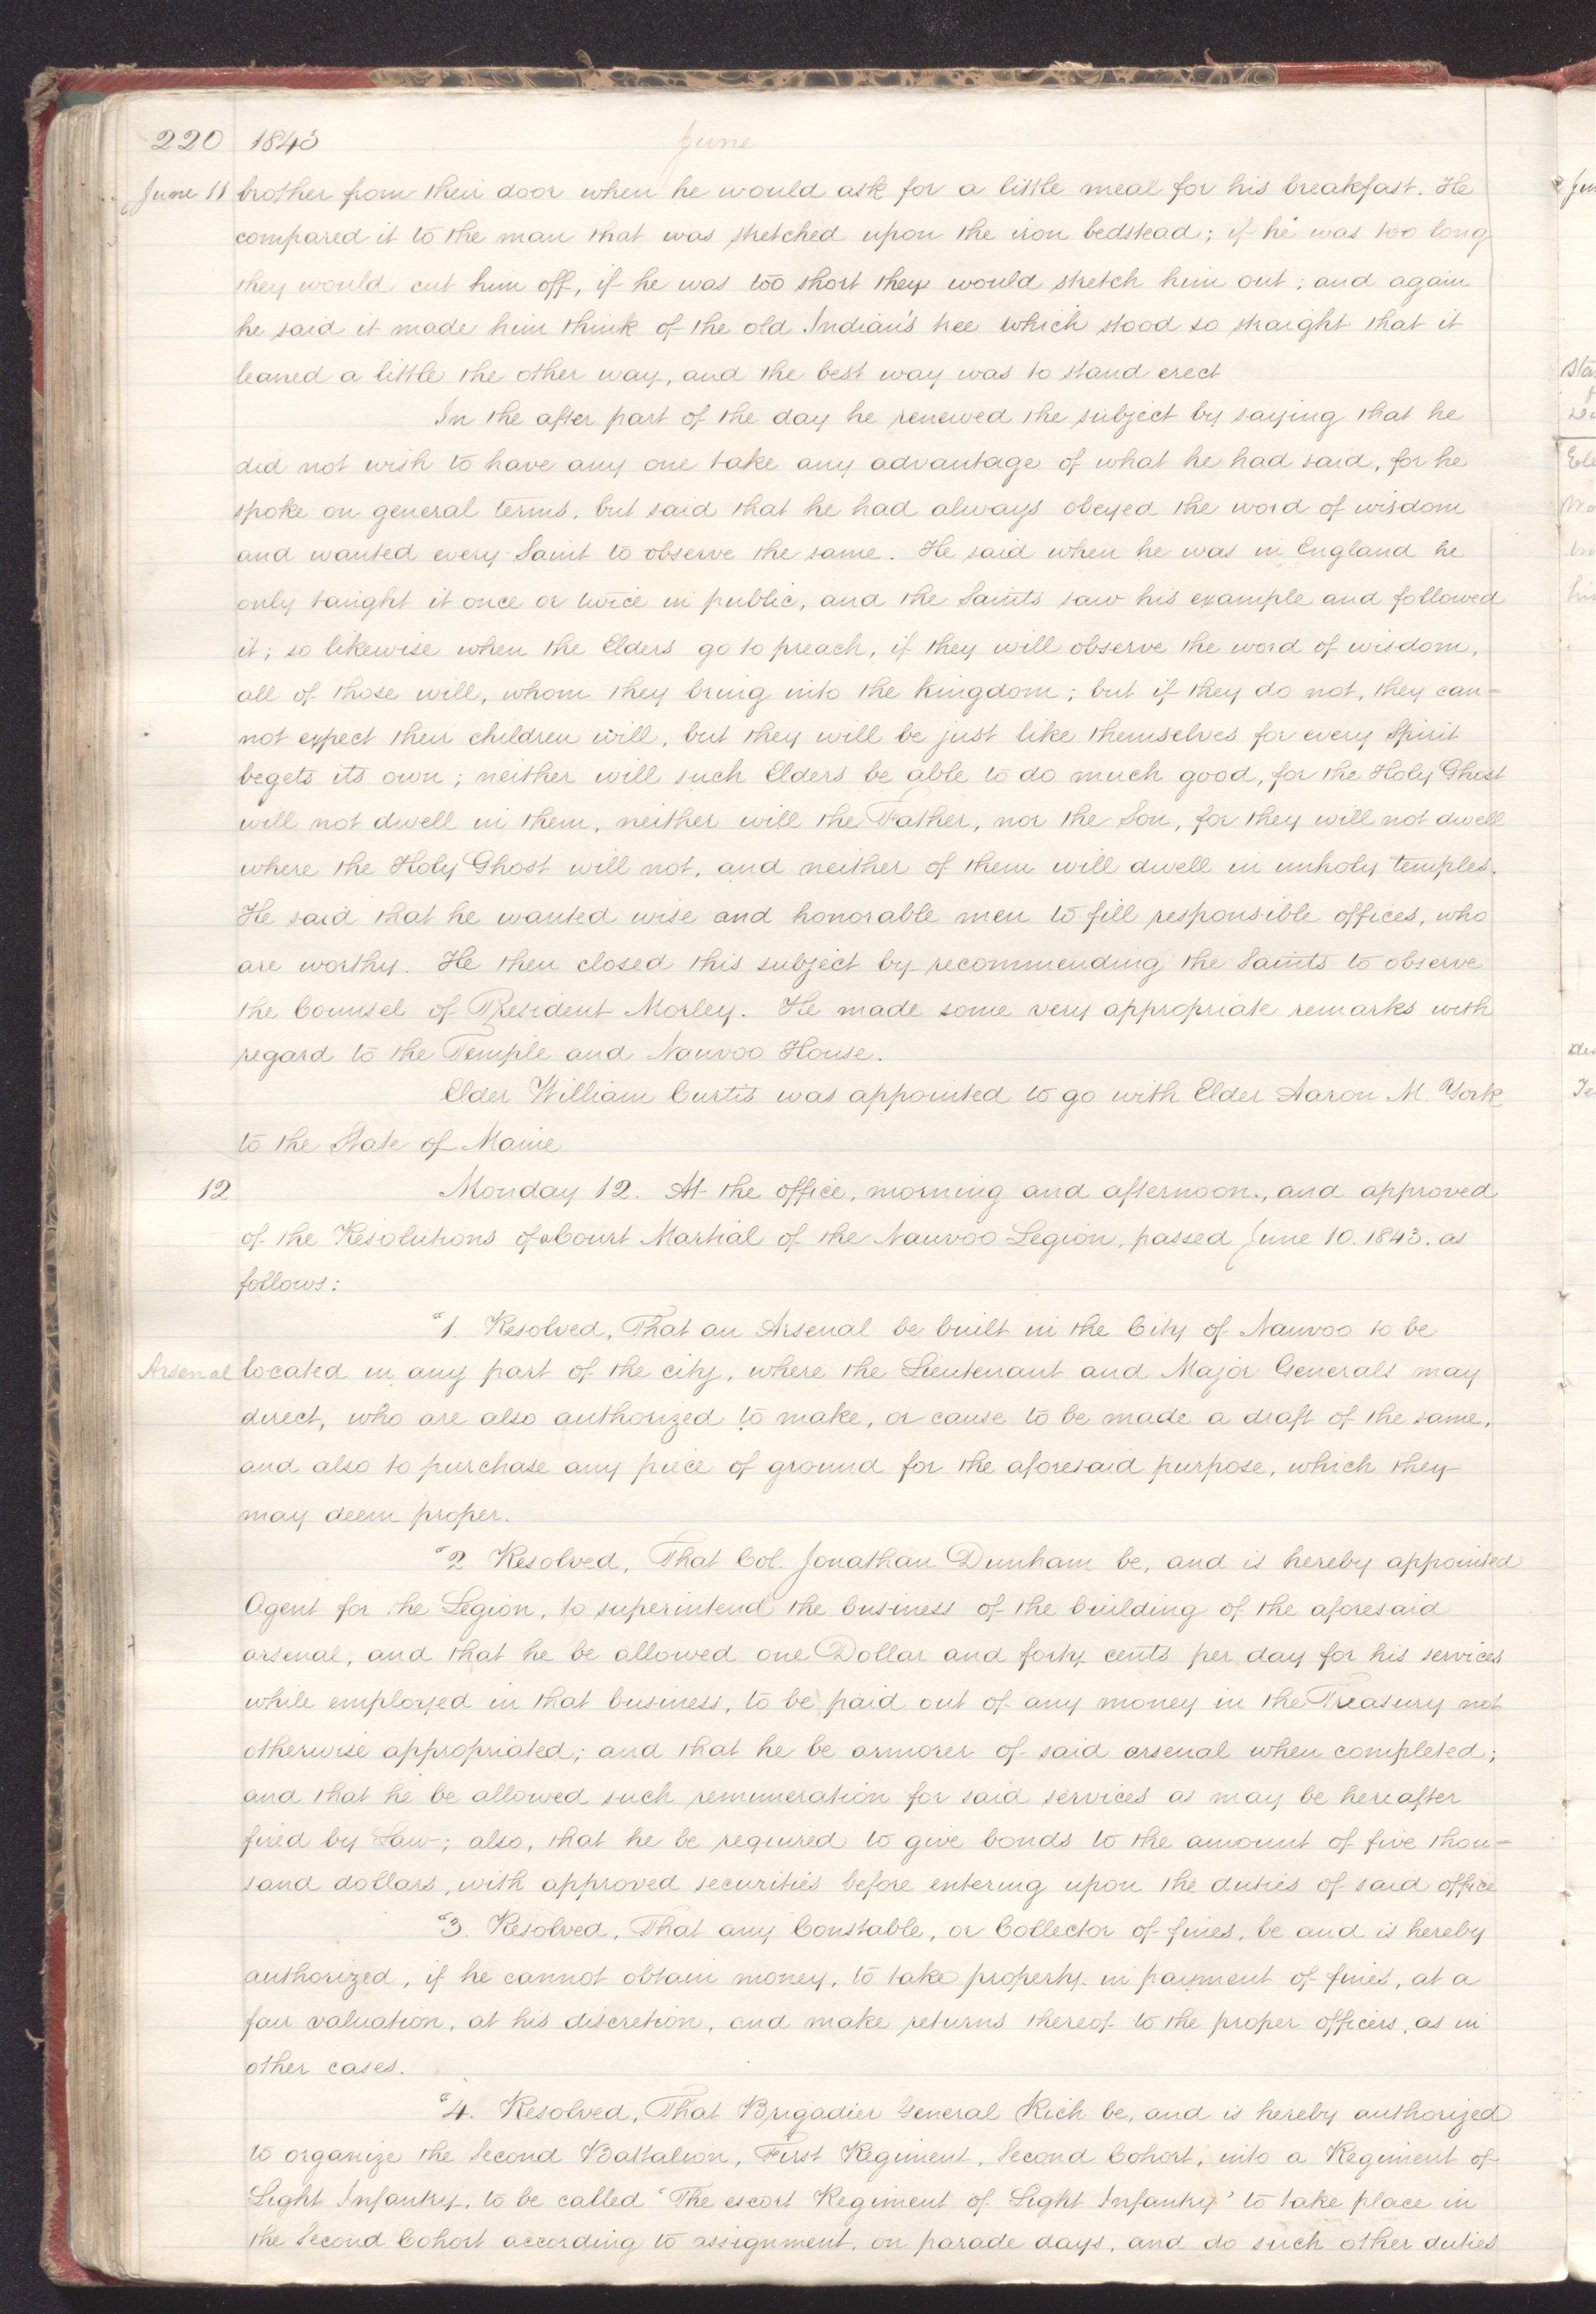 220 1843 June
June 11 brother from their door when he would ask for a little meal for his breakfast. He
compared it to the man that was stretched upon the iron bedstead; if he was too long
they would cut him off, if he was too short they would stretch him out; and again
he said it made him think of the old Indian's tree which stood so straight that it
leaned a little the other way, and the best way was to stand erect
In the after part of the day he renewed the subject by saying that he
did not wish to have any one take any advantage of what he had said, for he
spoke on general terms, but said that he had always obeyed the word of wisdom
and wanted every Saint to observe the same. He said when he was in England he
only taught it once or twice in public, and the Saints saw his example and followed
it; so likewise when the Elders go to preach, if they will observe the word of wisdom,
all of those will, whom they bring into the kingdom; but if they do not, they can-
not expect their children will, but they will be just like themselves for every Spirit
begets its own; neither will such Elders be able to do much good, for the Holy Ghost
will not dwell in them, neither will the Father, nor the Son, for they will not dwell
where the Holy Ghost will not, and neither of them will dwell in unholy temples.
He said that he wanted wise and honorable men to fill responsible offices, who
are worthy. He then closed this subject by recommending the Saints to observe
the Counsel of President Morley. He made some very appropriate remarks with
regard to the Temple and Nauvoo House.
Elder William Curtis was appointed to go with Elder Aaron M. York
to the State of Maine
12 Monday 12. At the office, morning and afternoon, and approved
of the Resolutions of a Court Martial of the Nauvoo Legion, passed June 10. 1843. as
follows:
"1. Resolved, That an Arsenal be built in the City of Nauvoo to be
Arsenal located in any part of the city, where the Lieutenant and Major Generals may
direct, who are also authorized to make, or cause to be made a draft of the same,
and also to purchase any piece of ground for the aforesaid purpose, which they
may deem proper.
"2 Resolved, That Col. Jonathan Dunham be, and is hereby appointed
Agent for the Legion, to superintend the business of the building of the aforesaid
arsenal, and that he be allowed one Dollar and forty cents per day for his services
while employed in that business, to be paid out of any money in the Treasury not
otherwise appropriated; and that he be armorer of said arsenal when completed;
and that he be allowed such remuneration for said services as may be hereafter
fixed by Law; also, that he be required to give bonds to the amount of five thou-
sand dollars, with approved securities before entering upon the duties of said office
"3. Resolved, That any Constable, or Collector of fines, be and is hereby
authorized, if he cannot obtain money, to take property in payment of fines, at a
fair valuation, at his discretion, and make returns thereof to the proper officers, as in
other cases.
"4. Resolved, That Brigadier General Rich be, and is hereby authorized
to organize the Second Battalion, First Regiment, Second Cohort, into a Regiment of
Light Infantry, to be called "The escort Regiment of Light Infantry" to take place in
the Second Cohort according to assignment, on parade days, and do such other duties